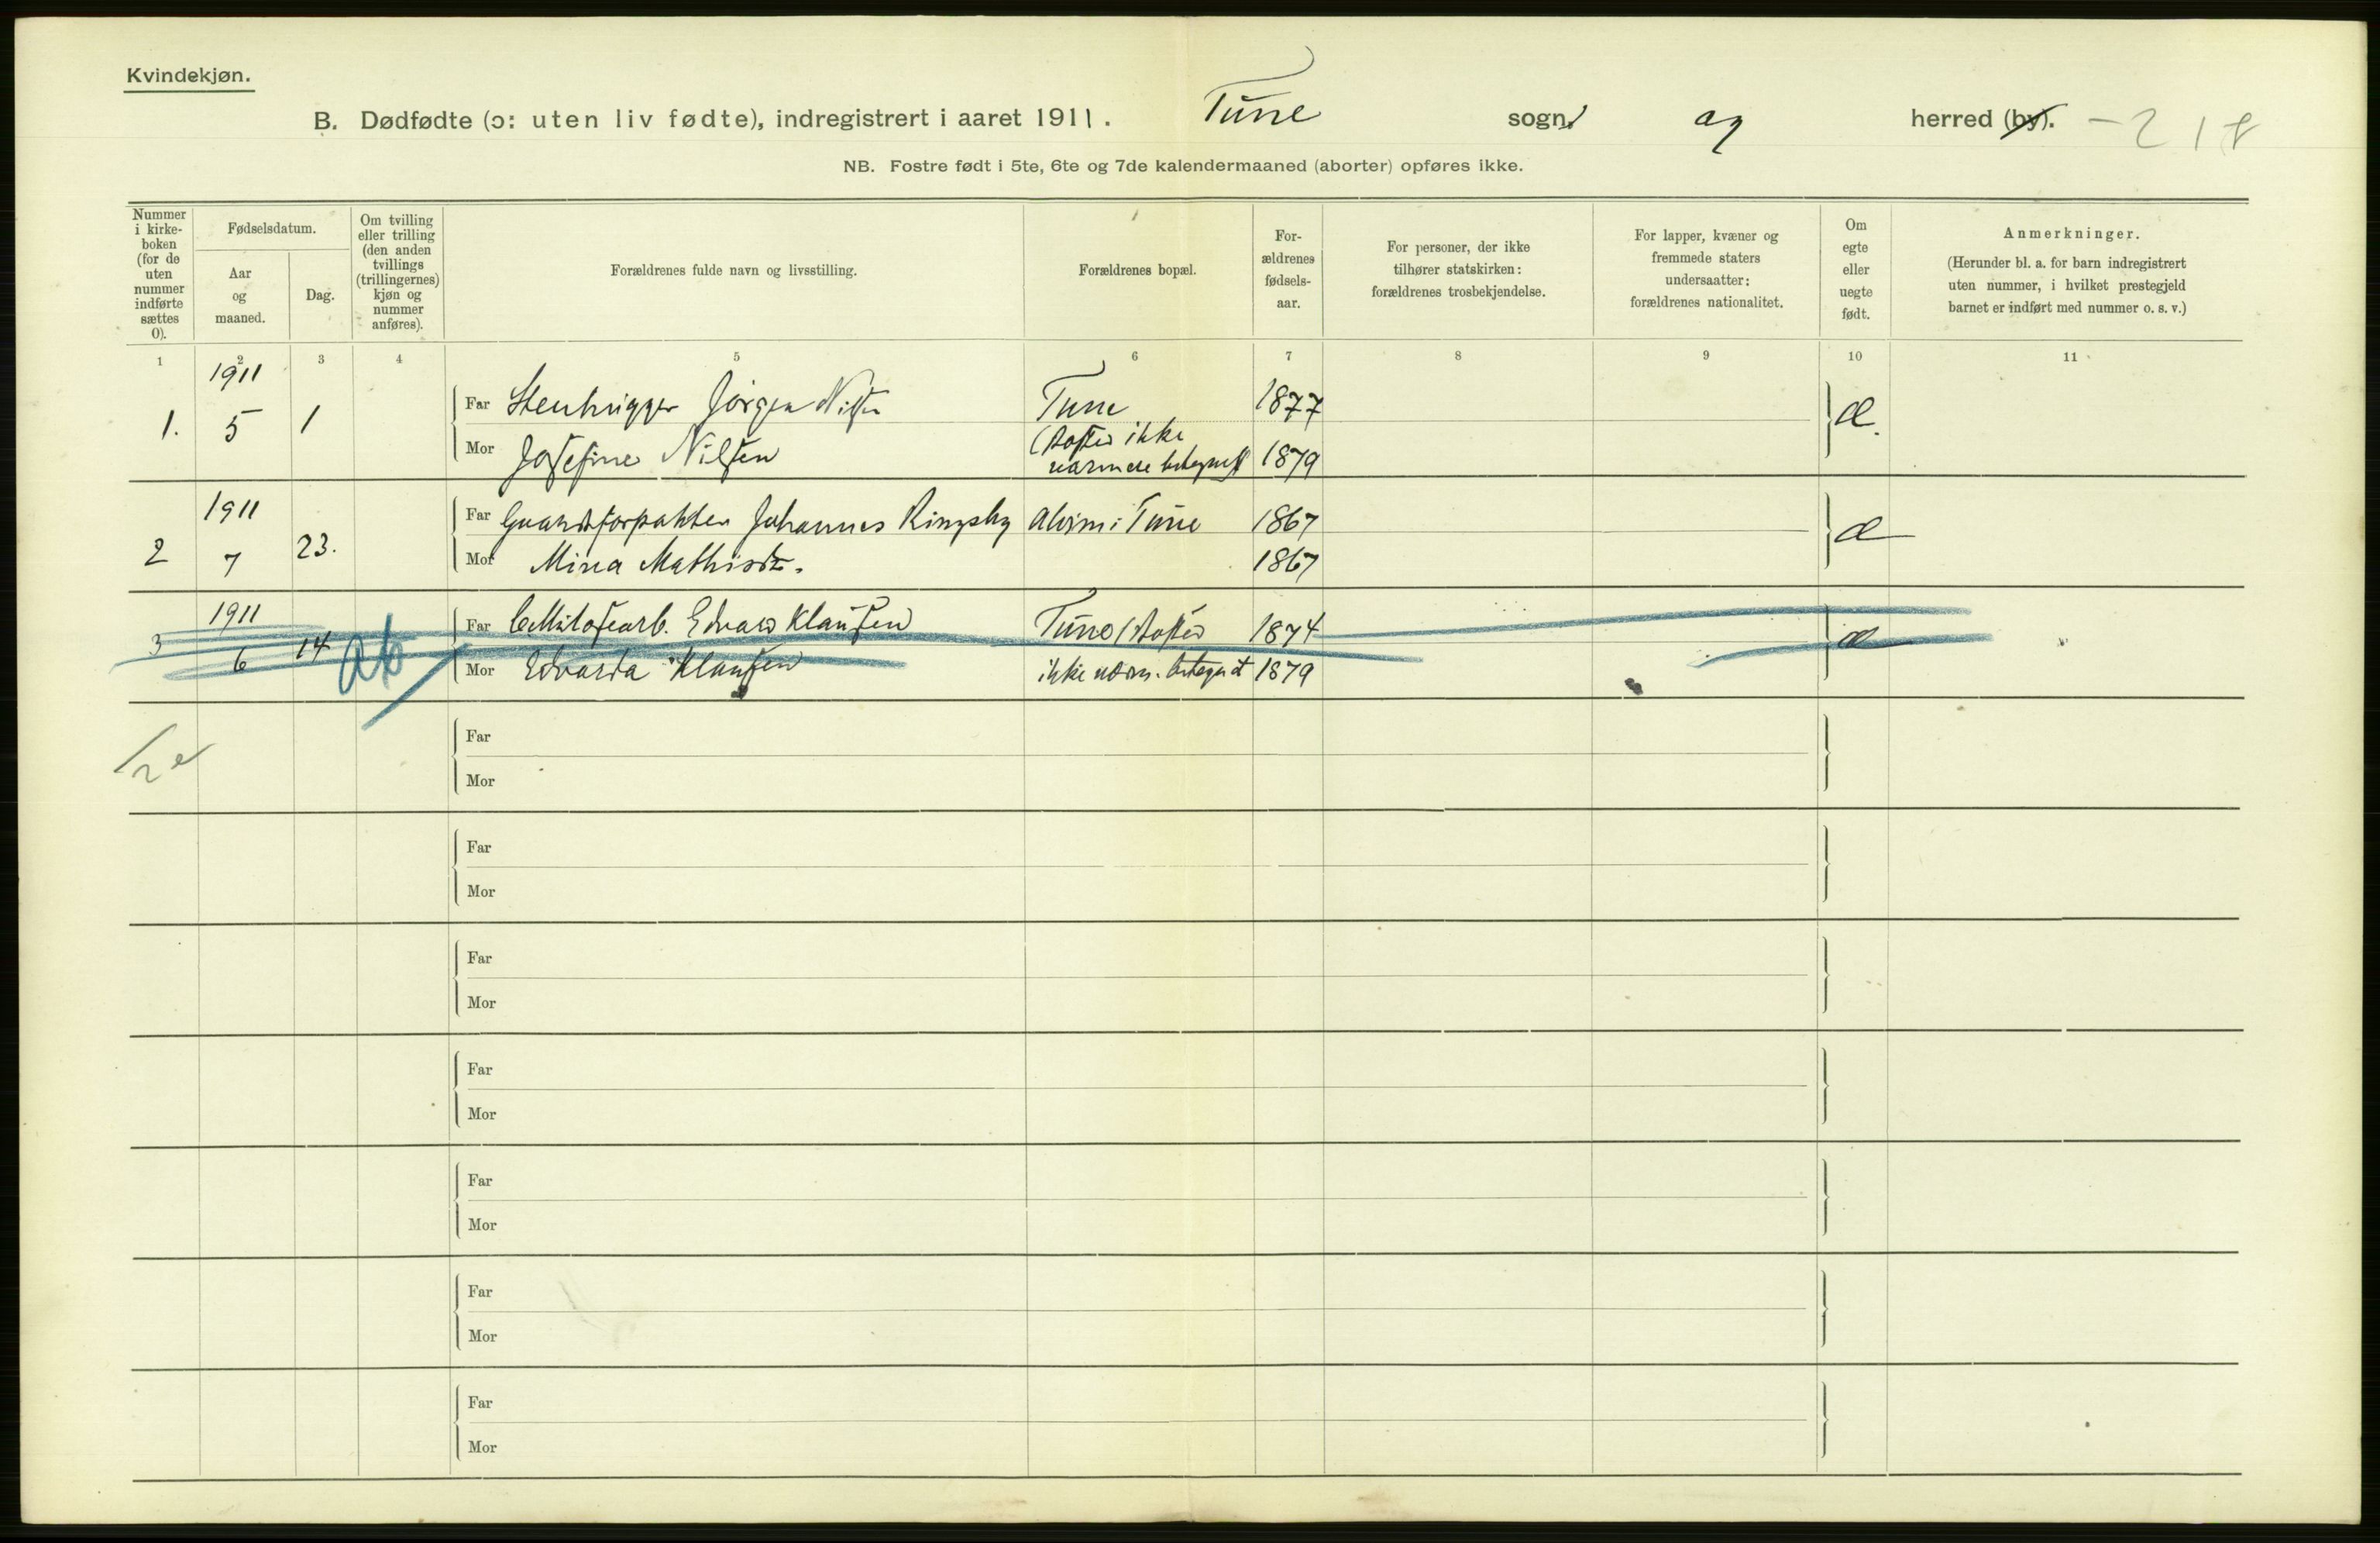 Kvindekjøn.
B. Dødfødte (ɔ: uten liv fødte), indregistrert i aaret 1911. Tune sogn og herred (by). - 218
NB. Fostre født i 5te, 6te og 7de kalendermaaned (aborter) opføres ikke.
Nummer
i kirke-
boken
(for de
uten
nummer
indførte
sættes
0).
Fødselsdatum.
Aar
og
maaned.
Dag.
Om tvilling
eller trilling
(den anden
tvillings
(trillingernes)
kjøn og
nummer
anføres).
Forældrenes fulde navn og livsstilling.
Forældrenes bopæl.
For-
ældrenes
fødsels-
aar.
For personer, der ikke
tilhører statskirken:
forældrenes trosbekjendelse.
For lapper, kvæner og
fremmede staters
undersaatter:
forældrenes nationalitet.
Om
egte
eller
uegte
født.
Anmerkninger.
(Herunder bl. a. for barn indregistrert
uten nummer, i hvilket prestegjeld
barnet er indført med nummer o. s. v.)
1 2 3 4 5 6 7 8 9 10 11
1911
1. 5 1 Far Stenhugger Jørgen Nilsen Tune 1877 Æ.
Mor Josefine Nilsen (Sted ikke nærmere betegnet) 1879
1911
2 7 23. Far Johannes Ringsby Alvim i Tune 1867 Æ
Mor Mina Mathisdtr. 1867
1911
3 6 14 Ab Far Cellulosearb. Edvard Klausen Tune (Sted 1874 Æ
Mor Edvarda Klausen ikke nærm. betegnet 1879
2 e
Far
Mor
Far
Mor
Far
Mor
Far
Mor
Far
Mor
Far
Mor
Far
Mor